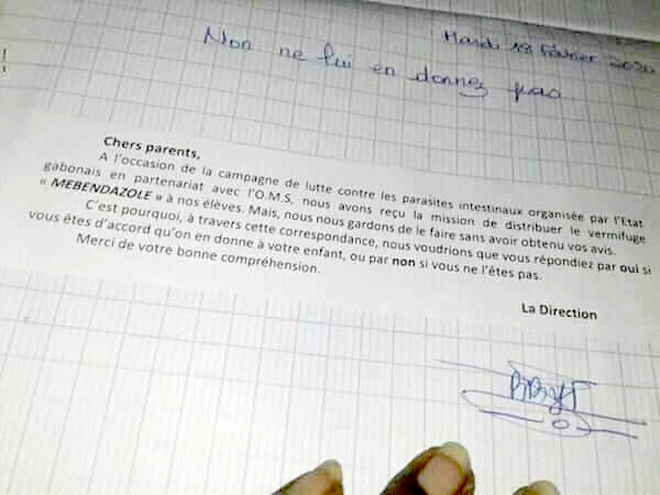 Mardi 18 Février 2020
Non ne lui en donnez pas
Chers parents,
A l'occasion de la campagne de lutte contre les parasites intestinaux organisée par l'Etat
gabonais en partenariat avec l'O.M.S, nous avons reçu la mission de distribuer le vermifuge
« MEBENDAZOLE » à nos élèves. Mais, nous nous gardons de le faire sans avoir obtenu vos avis.
C'est pourquoi, à travers cette correspondance, nous voudrions que vous répondiez par oui si
vous êtes d'accord qu'on en donne à votre enfant, ou par non si vous ne l'êtes pas.
Merci de votre bonne compréhension.
La Direction